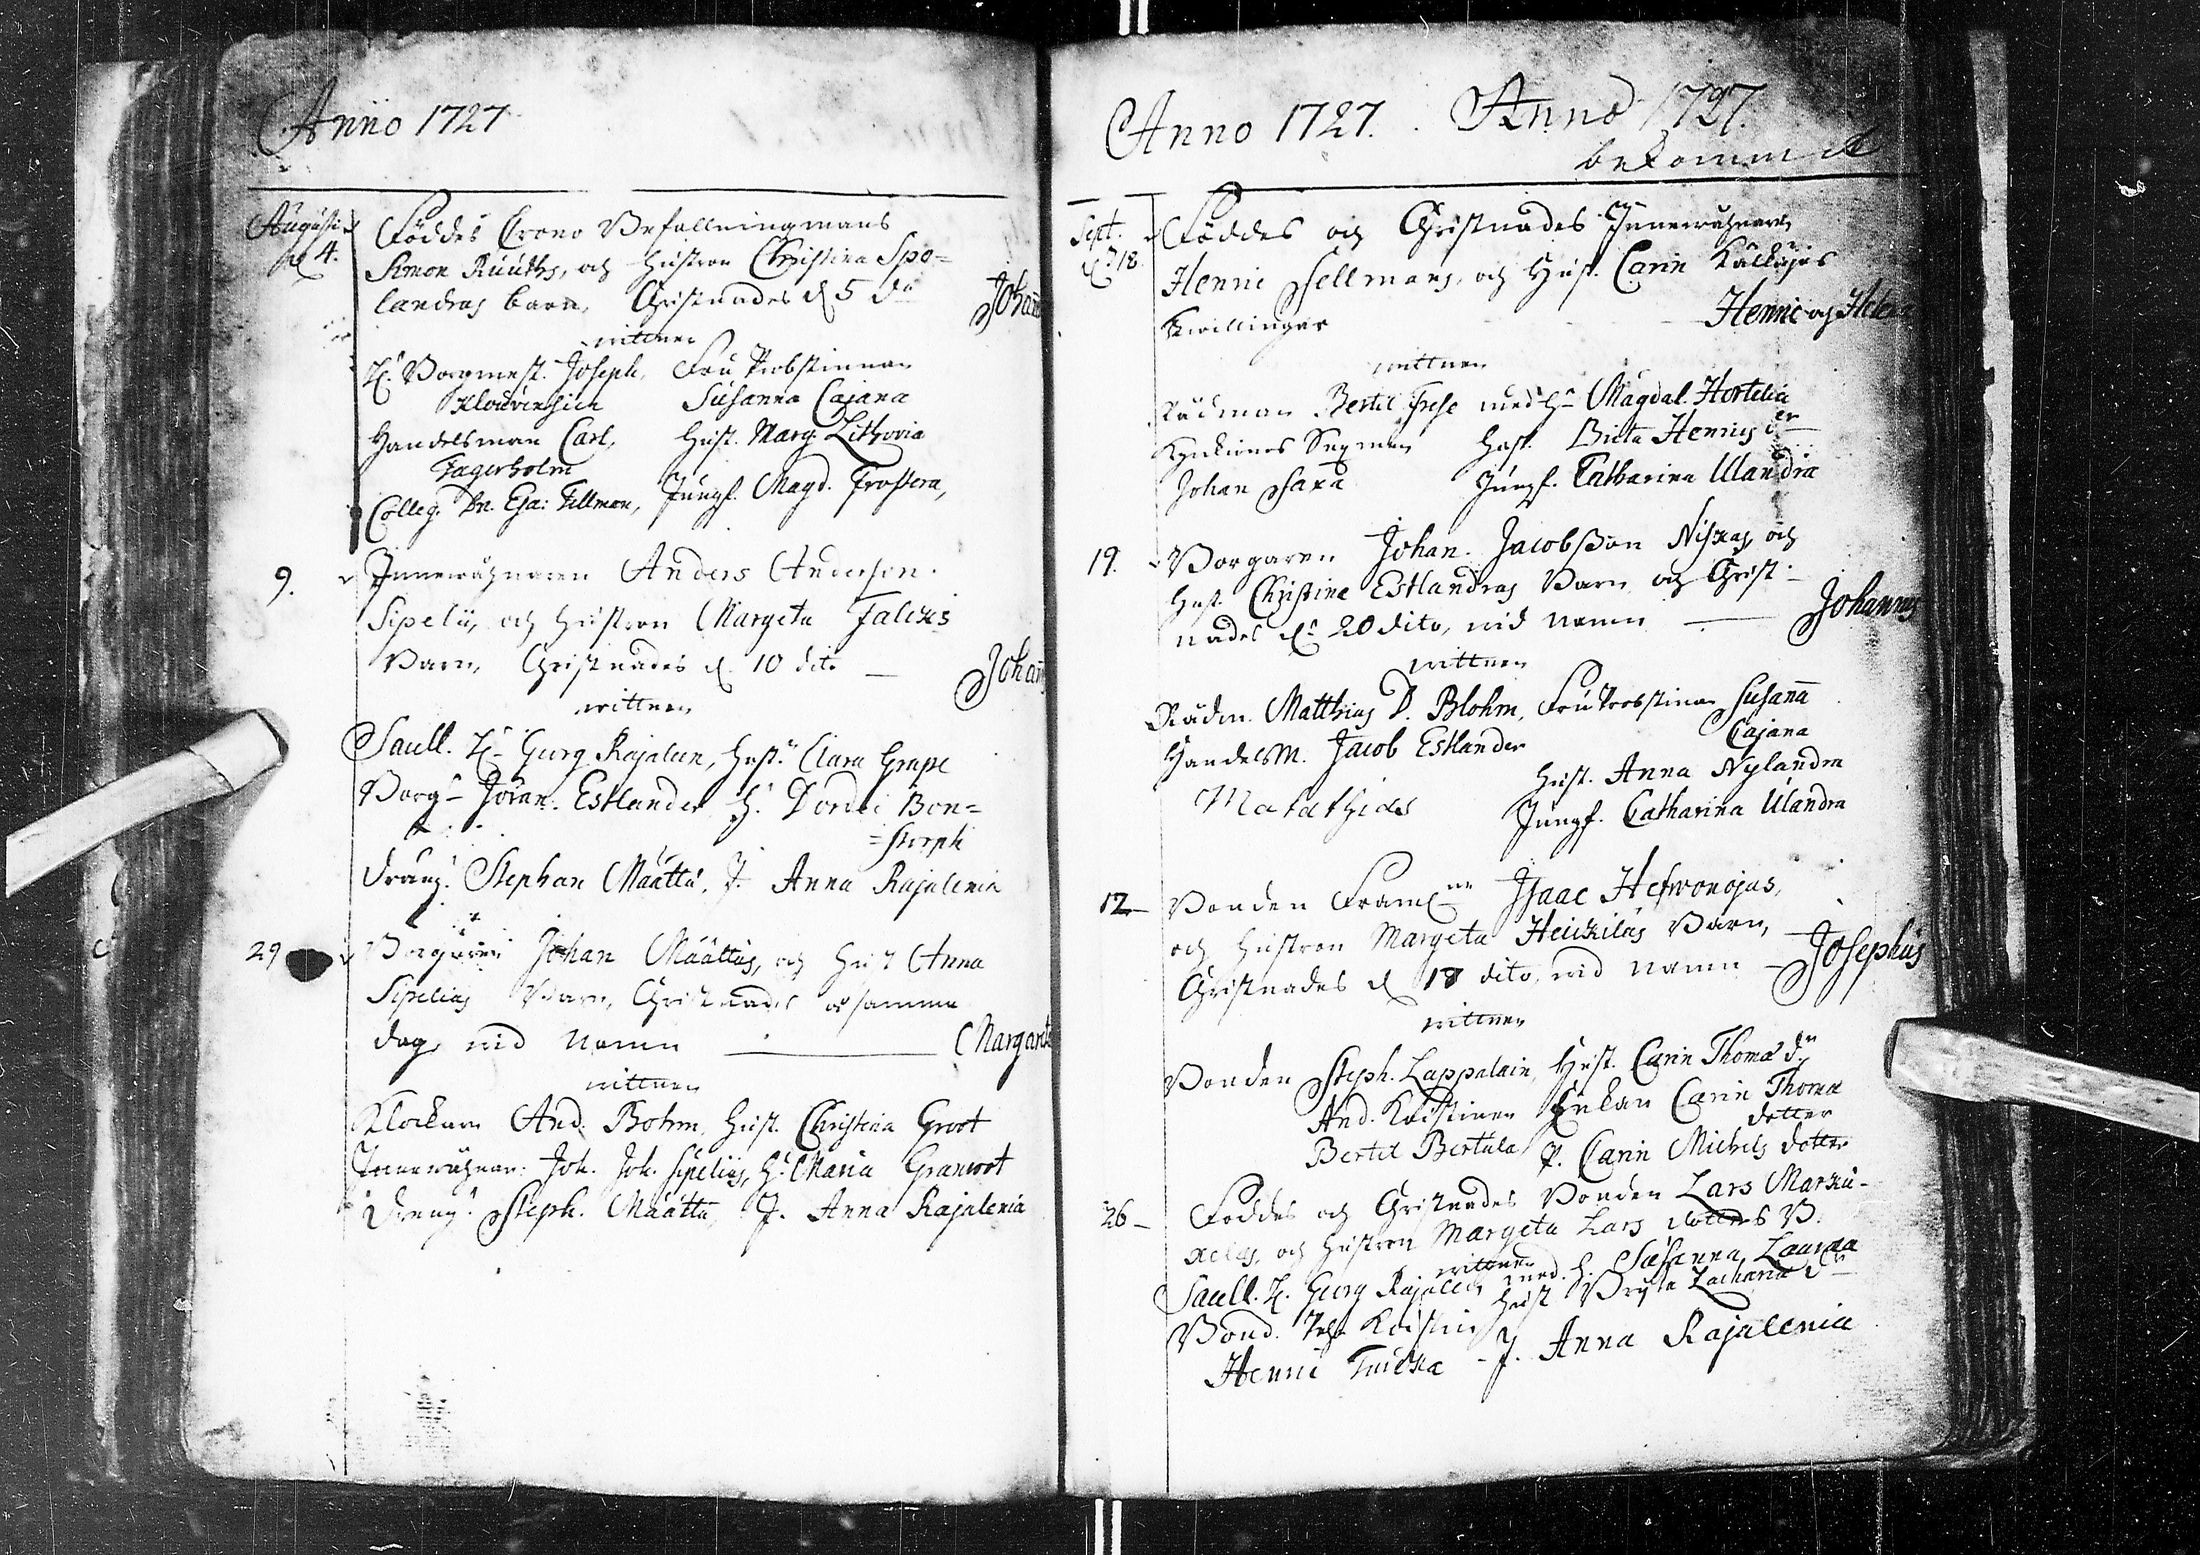 Anno 1727
Augusti
d. 4. Föddes Crono Befallningmans
Simon Ruuths, och hustron Christina Spo=
landras barn, Christnades d 5 do Johan
wittnen
H. Borgmest. Joseph, Fru Probstinnan
Susanna Cajana
Handelsman Carl, Hust. Marg. Lithovia
Fagerholm
Colleg. Dn. Esa: Fellman, Jungf. Magd. Frostera,
9. Innewåhnaren Anders Anderson
Sipelii, och hustron Margeta Falckis
Barn, Christnades d. 10 dito — Johan
wittnen
Sacell. H. Georg Rajalen, hust. Clara Grape
Borg. Johan. Estlander H. Dordei Bon=
=storph
dräng. Stephan Määttä, J. Anna Rajalenia
29 Borgaren Johan Määttäs, och Hust Anna
Sipelias Barn, Christnades samma
dag, wid namn — Margareta
wittnen
Klockaren And. Bohm, hust. Christina Groot
Innewåhnar. Joh. Joh. Sipelius, H. Maria Granroot
Dreng. Steph. Määttä, J. Anna Rajalenia
Anno 1727. Anno 1727.
bekommit
Sept.
d. 18 Föddes och Christnades Innewåhnaren
Henric Sellmans, och Hust. Carin Källajas
Twillingar Henric och Helena
wittnen
Rådman Bertil Frese med H. Magdal. Hortelia
Hust. Brita Henrics dr
Johan Saxa Jungf. Catharina Ulandra
19. Borgaren Johan Jacobsson Niskas och
Hust. Christina Estlandras Barn och Christ-
nades d. 20 dito, wid namn — Johannes
wittnen
Rådm. Matthias D. Blohm, Fru Probstinan Susana
Cajana
Handelsm. Jacob Estlander
Hust. Anna Nylandra
Matathias
Jungf. Catharina Ulandra
12 — Bonden Isaac Hefwonojas,
och hustron Margeta Heickiläs Barn,
Christnades d 18 dito, wid namn — Josephus
wittnen
Bonden Steph. Lappalain, Hust. Carin Thomæ dr
And. Koistinen Enkan Carin Thomæ
dotter
Bertil Bertula P. Carin Michels dotter
26 — Föddes och Christnades Bonden Lars Marku-
och hustron Margeta Lars dotters B.
wittnen
Sacell. H. Georg Rajalen med H. Susanna Lauræa
Bond. Koistin Hust Zachariæ dr
Henric J. Anna Rajalenia